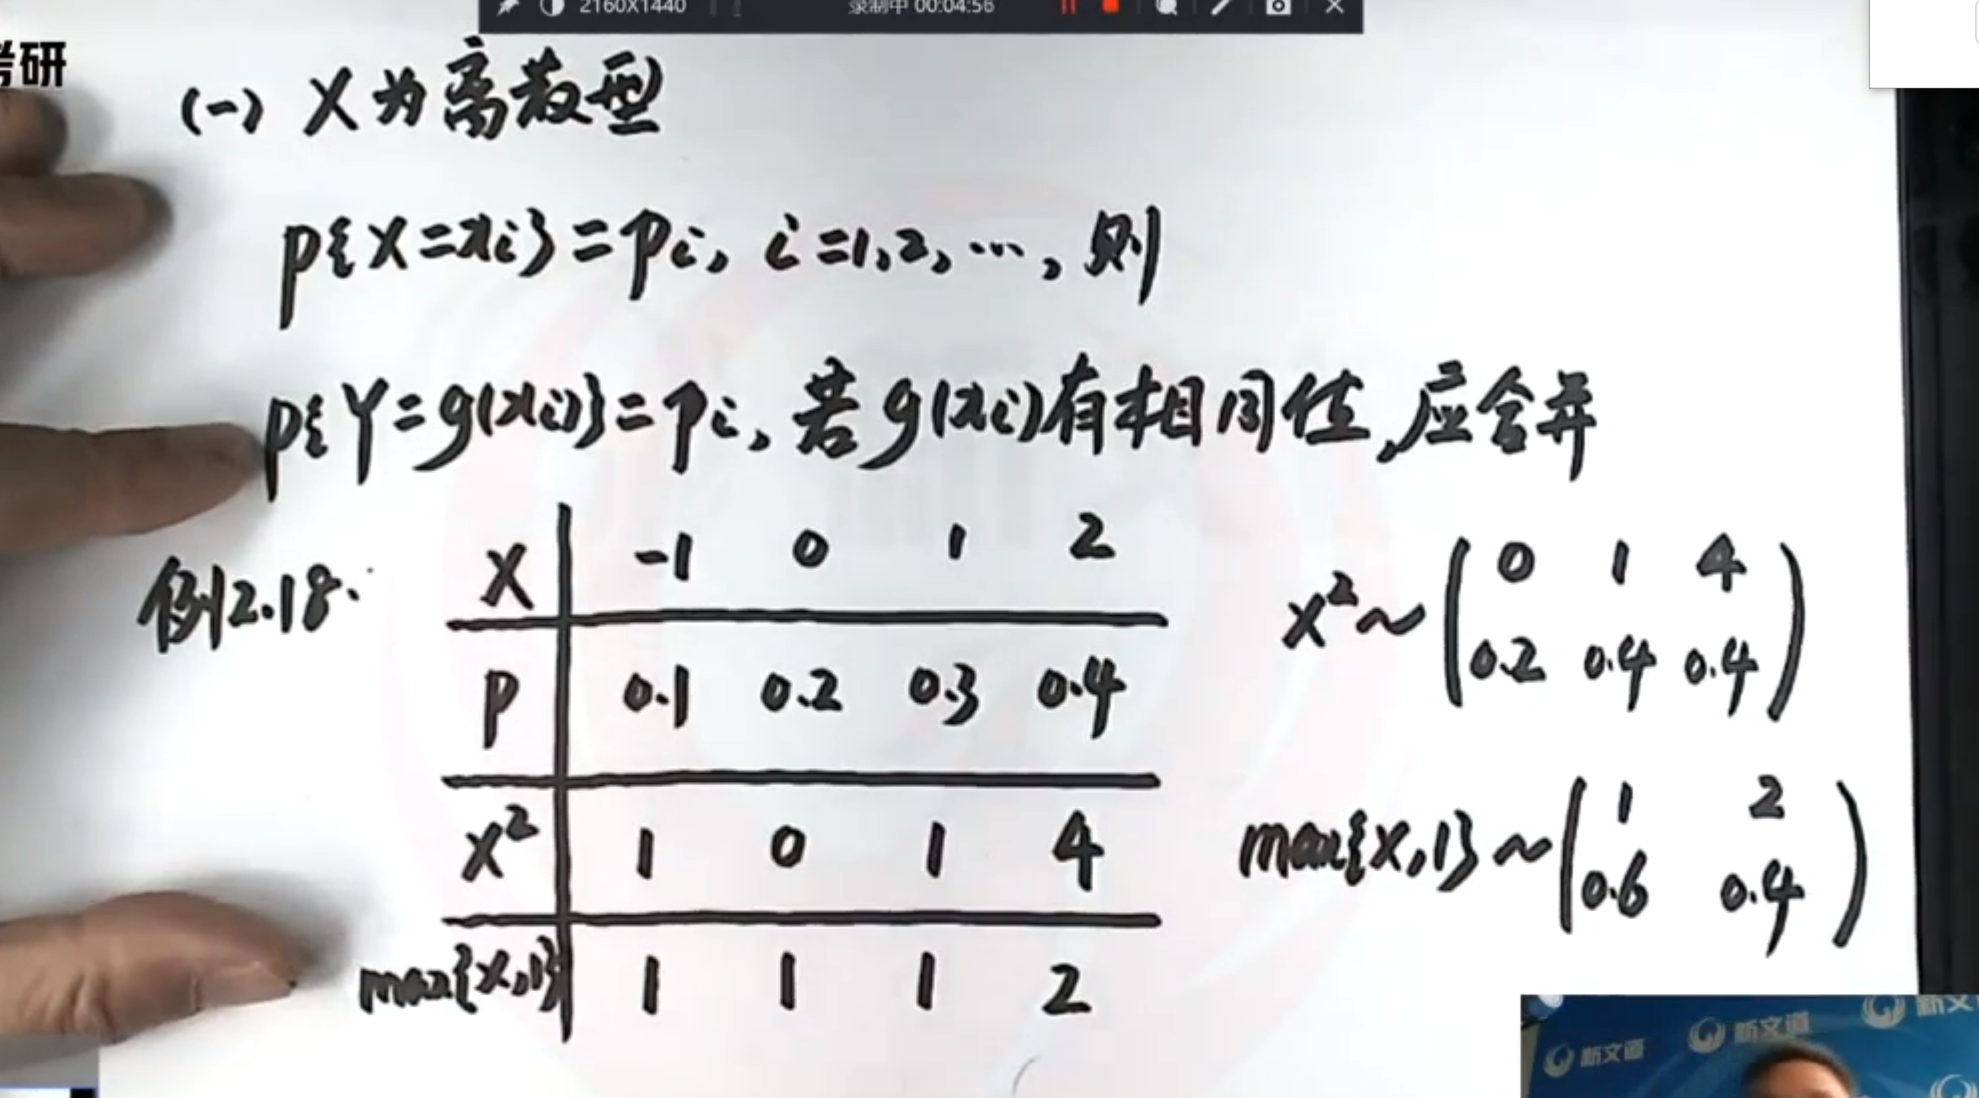 2160X1440 录制中 00:04:56
考研
(一) X为离散型
P{X=xi}=pi, i=1,2,…, 则
P{Y=g(xi)}=pi, 若g(xi)有相同值,应合并
例2.18.
X -1 0 1 2
P 0.1 0.2 0.3 0.4
X² 1 0 1 4
max{X,1} 1 1 1 2
X²~(0 1 4
0.2 0.4 0.4)
max{X,1}~(1 2
0.6 0.4)
新文道 新文道 新文